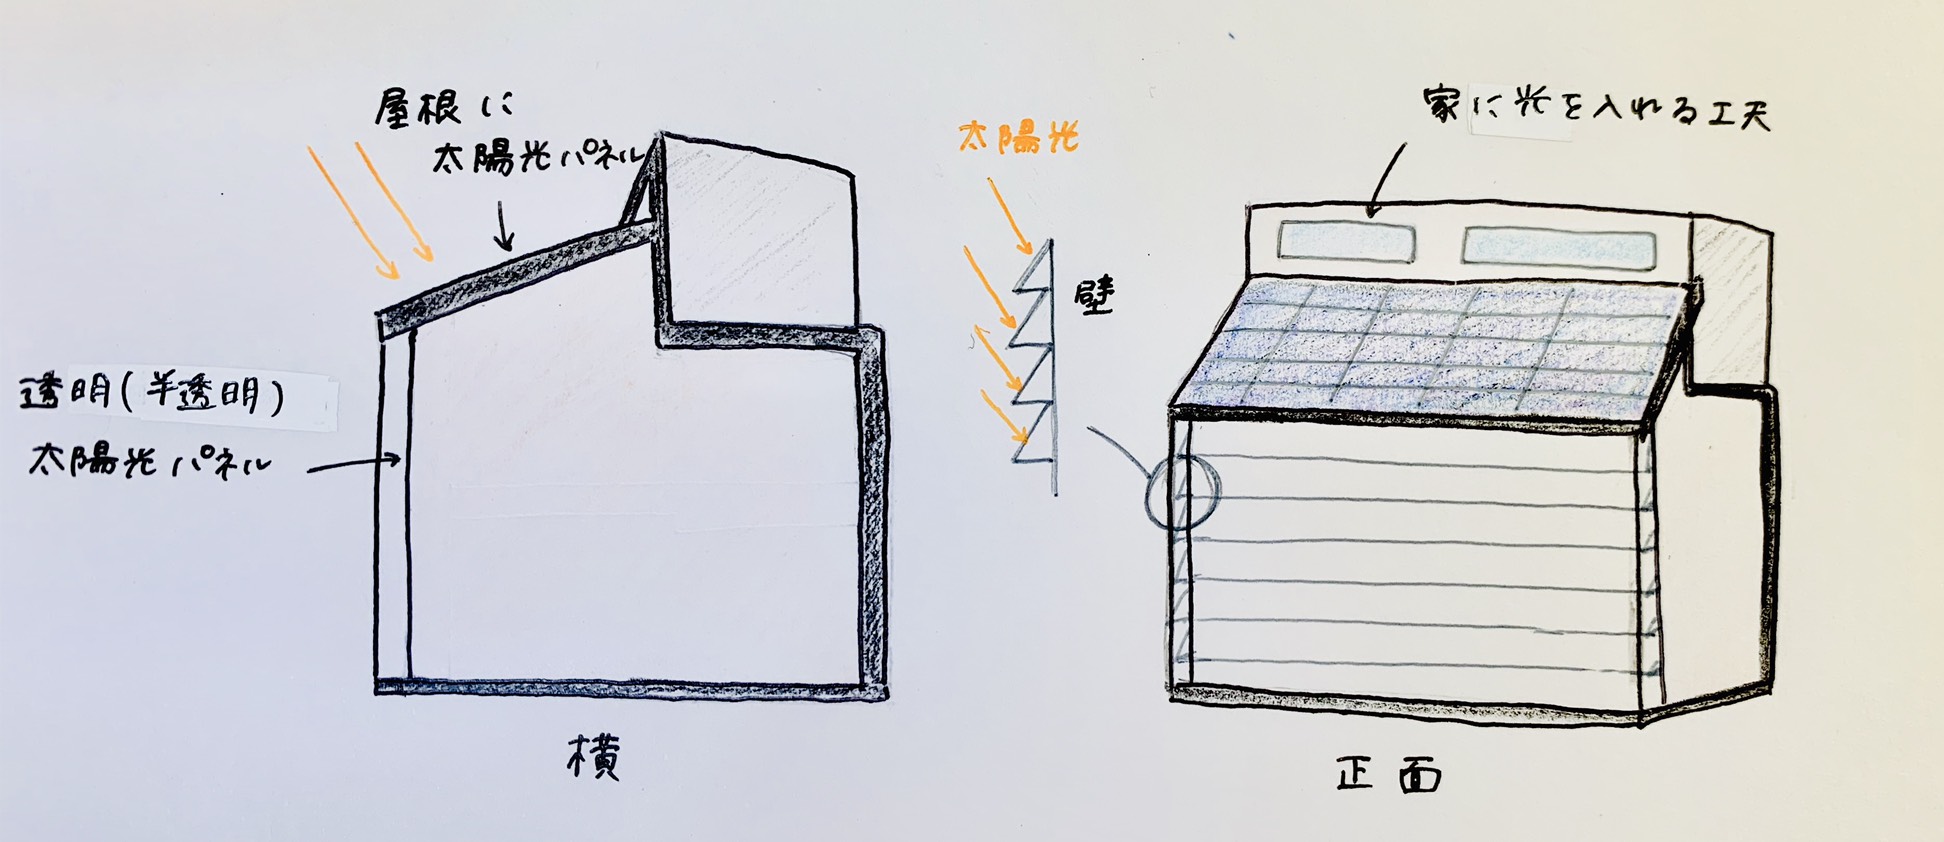 屋根に
太陽光パネル
透明(半透明)
太陽光パネル
横
太陽光
壁
家に光を入れる工夫
正面